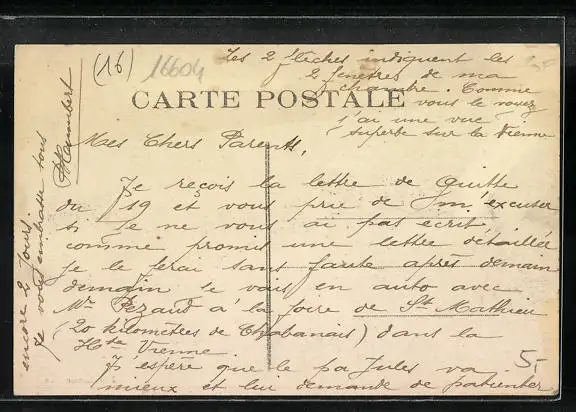 (16)
16604
Les 2 flèches indiquent les
2 fenêtres de ma
chambre. Comme
CARTE POSTALE
vous le voyez
j'ai une vue
superbe sur la Vienne
Mes Chers Parents,
Je reçois la lettre de Guitte
du 19 et vous prie de m'excuser
si je ne vous ai pas écrit,
comme promis une lettre détaillée
je le ferai sans faute après demain
demain je vais en auto avec
Mr Pezaud à la foire de St Mathieu
(20 kilomètres de Chabanais) dans la
Hte Vienne.
J'espère que le pa Jules va
mieux et lui demande de patienter
encore 2 jours.
Je vous embrasse tous
5.-